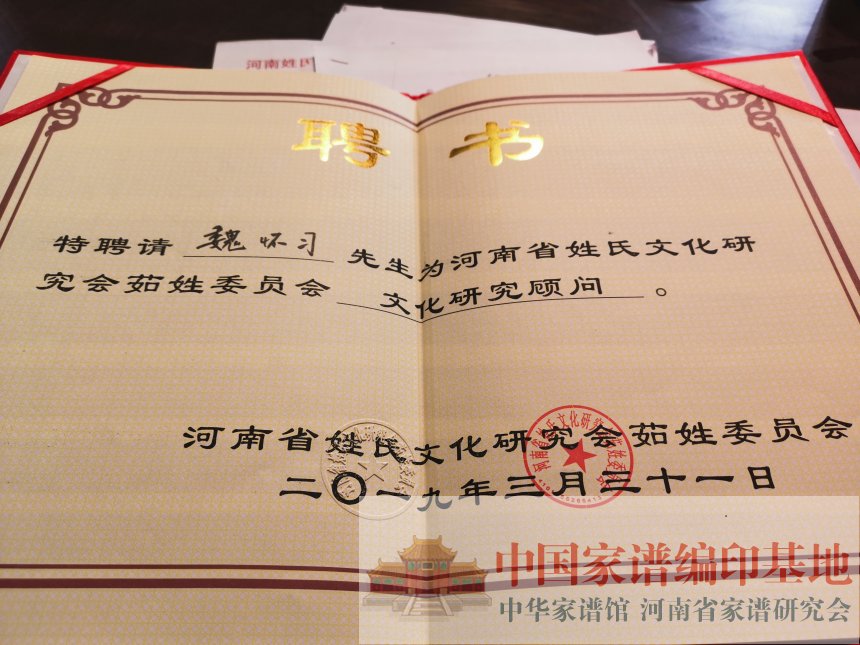 河南姓氏
聘书
特聘请 魏怀习 先生为河南省姓氏文化研
究会茹姓委员会 文化研究顾问 。
河南省姓氏文化研究会茹姓委员会
河南省姓氏文化研究会茹姓委员会
二〇一九年三月三十一日
中国家谱编印基地
中华家谱馆 河南省家谱研究会